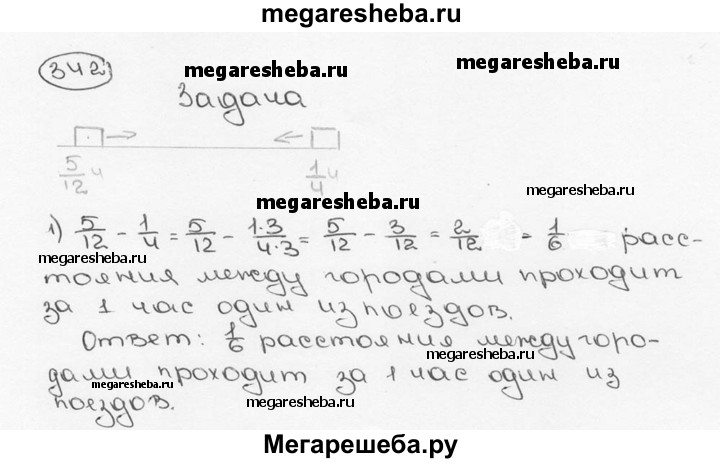 megaresheba.ru
342)
megaresheba.ru
Задача
5/12 ч 1/4 ч
megaresheba.ru
megaresheba.ru
1) 5/12 - 1/4 = 5/12 - 1·3/4·3 = 5/12 - 3/12 = 2/12 = 1/6 расс-
megaresheba.ru
тояния между городами проходит
за 1 час один из поездов.
megaresheba.ru
Ответ: 1/6 расстояния между горо-
megaresheba.ru
дами проходит за 1 час один из
megaresheba.ru
megaresheba.ru
поездов.
Мегарешеба.ру